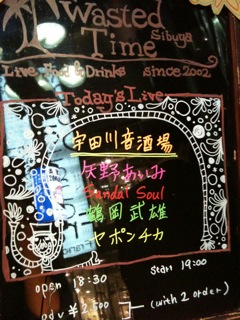 Wasted
Sibuya
Time
Live Food & Drinks since 2002
Today's Live
宇田川音酒場
矢野あいみ
Sandal Soul
鶴岡武雄
ヤポンチカ
open 18:30 start 19:00
adv ¥2,500 (with 2 order)